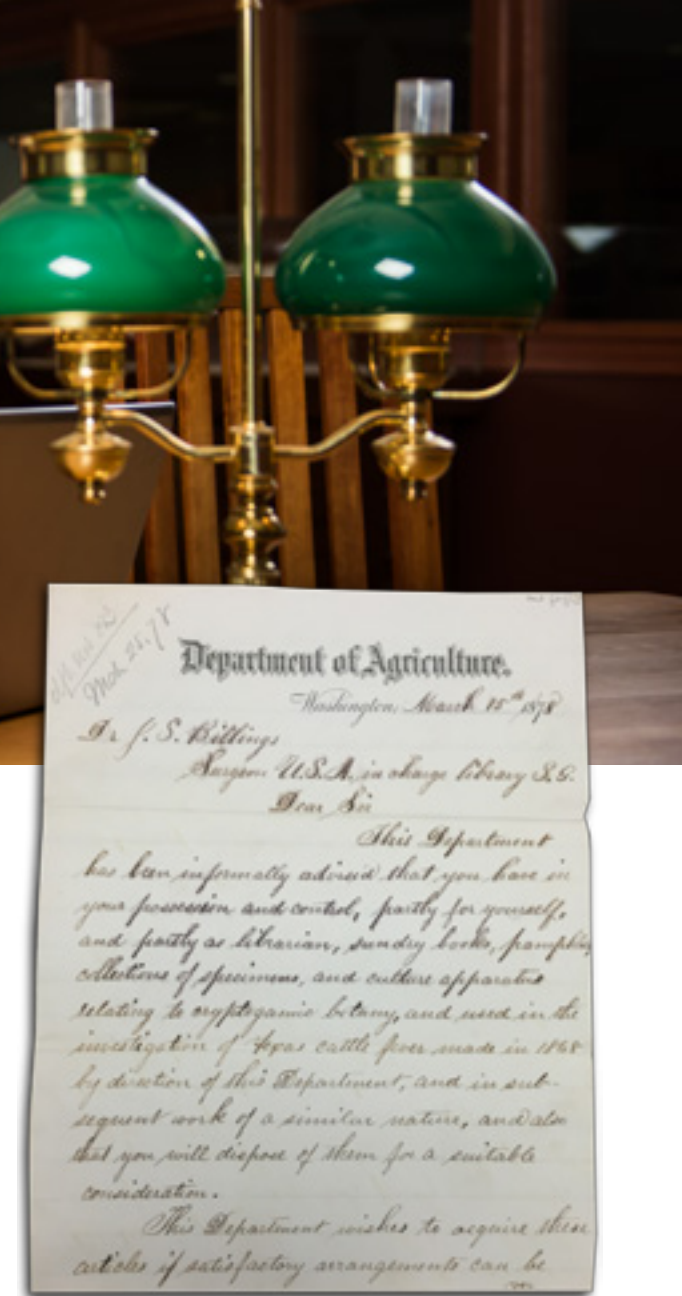 Mch 25. 78
Department of Agriculture.
Washington, March 15th 1878
Dr J. S. Billings
Surgeon U.S.A. in charge library S. G.
Dear Sir
This Department
has been informally advised that you have in
your possession and control, partly for yourself,
and partly as librarian, sundry books, pamphlets,
collections of specimens, and culture apparatus
relating to cryptogamic botany, and used in the
investigation of Texas cattle fever made in 1868
by direction of this Department, and in sub-
sequent work of a similar nature, and also
that you will dispose of them for a suitable
consideration.
This Department wishes to acquire these
articles if satisfactory arrangements can be